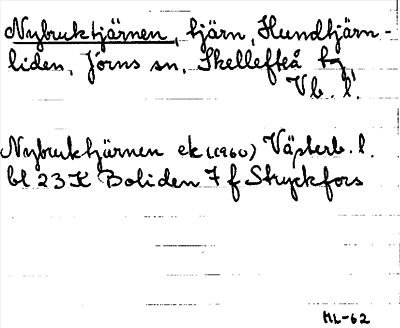 Nybruktjärnen, tjärn, Hundtjärn-
liden, Jörns sn, Skellefteå tg
Vb. l.
Nybruktjärnen ek (1960) Västerb. l.
bl 23 K Boliden 7 f Stryckfors
ML-62